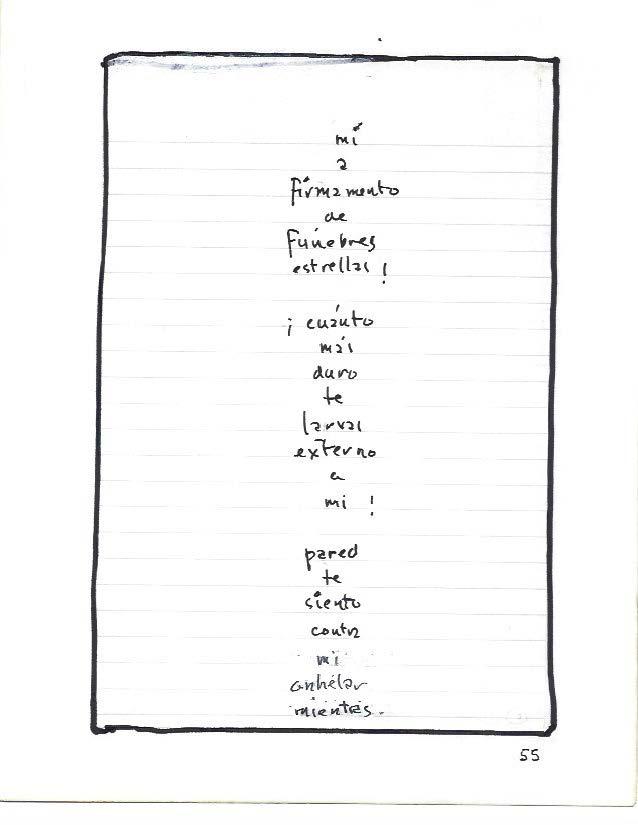 mí
a
firmamento
de
fúnebres
estrellas!

¡ cuánto
más
duro
te
larvas
externo
a
mi !

pared
te
siento
contra
mi
anhelar
mientras.

55